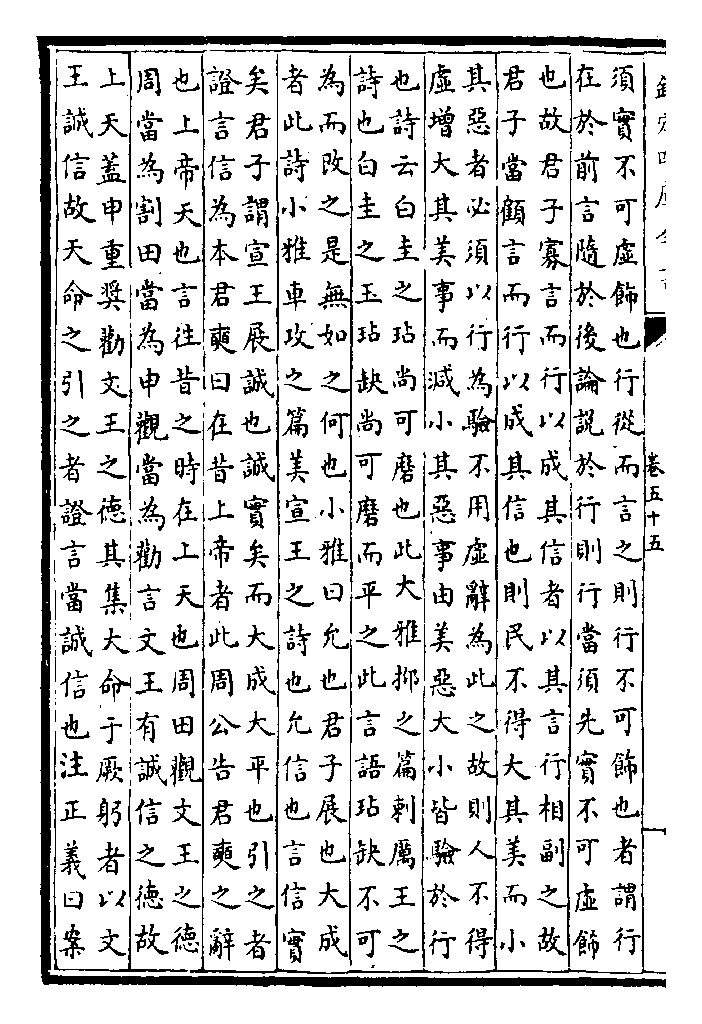 欽定四庫全書
卷五十五
須實不可虛飾也行從而言之則行不可飾也者謂行
在於前言隨於後論說於行則行當須先實不可虛飾
也故君子寡言而行以成其信者以其言行相副之故
君子當顧言而行以成其信也則民不得大其美而小
其惡者必須以行為驗不用虛辭為此之故則人不得
虛增大其美事而減小其惡事由美惡大小皆驗於行
也詩云白圭之玷尚可磨也此大雅抑之篇刺厲王之
詩也白圭之玉玷缺尚可磨而平之此言語玷缺不可
為而改之是無如之何也小雅曰允也君子展也大成
者此詩小雅車攻之篇美宣王之詩也允信也言信實
矣君子謂宣王展誠也誠實矣而大成大平也引之者
證言信為本君奭曰在昔上帝者此周公告君奭之辭
也上帝天也言往昔之時在上天也周田觀文王之德
周當為割田當為申觀當為勸言文王有誠信之德故
上天蓋申重奨勸文王之德其集大命于厥躬者以文
王誠信故天命之引之者證言當誠信也注正義曰案